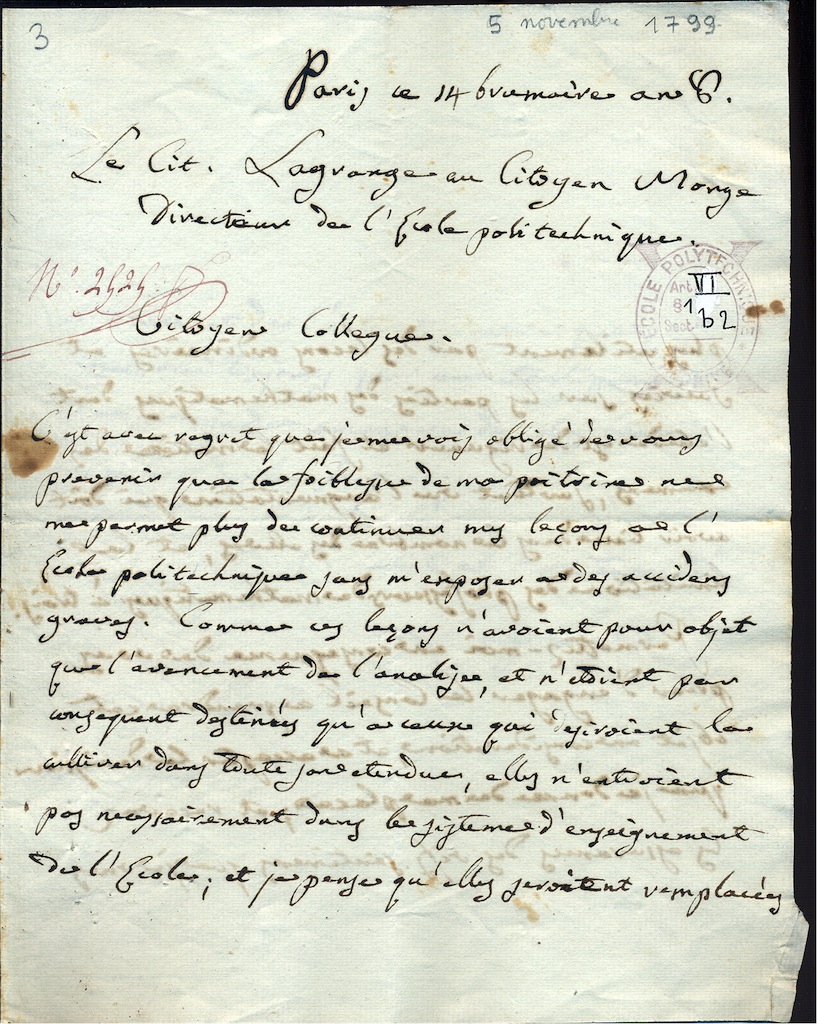 3
5 novembre 1799
Paris ce 14 brumaire an 8.
Le Cit. Lagrange au Citoyen Monge
Directeur de l'Ecole politechnique.
N°. 2525
ECOLE POLYTECHNIQUE
Art VI
§ 1
Sect b2
Citoyen Collegue.
C'est avec regret que je me vois obligé de vous
prevenir que la foiblesse de ma poitrine ne
me permet plus de continuer mes leçons a l'
Ecole politechnique sans m'exposer a des accidens
graves. Comme ces leçons n'avoient pour objet
que l'avancement de l'analise, et n'etoient par
consequent destinées qu'a ceux qui desiroient la
cultiver dans toute son etendue, elles n'entroient
pas necessairement dans le sisteme d'enseignement
de l'Ecole; et je pense qu'elles seroient remplacées